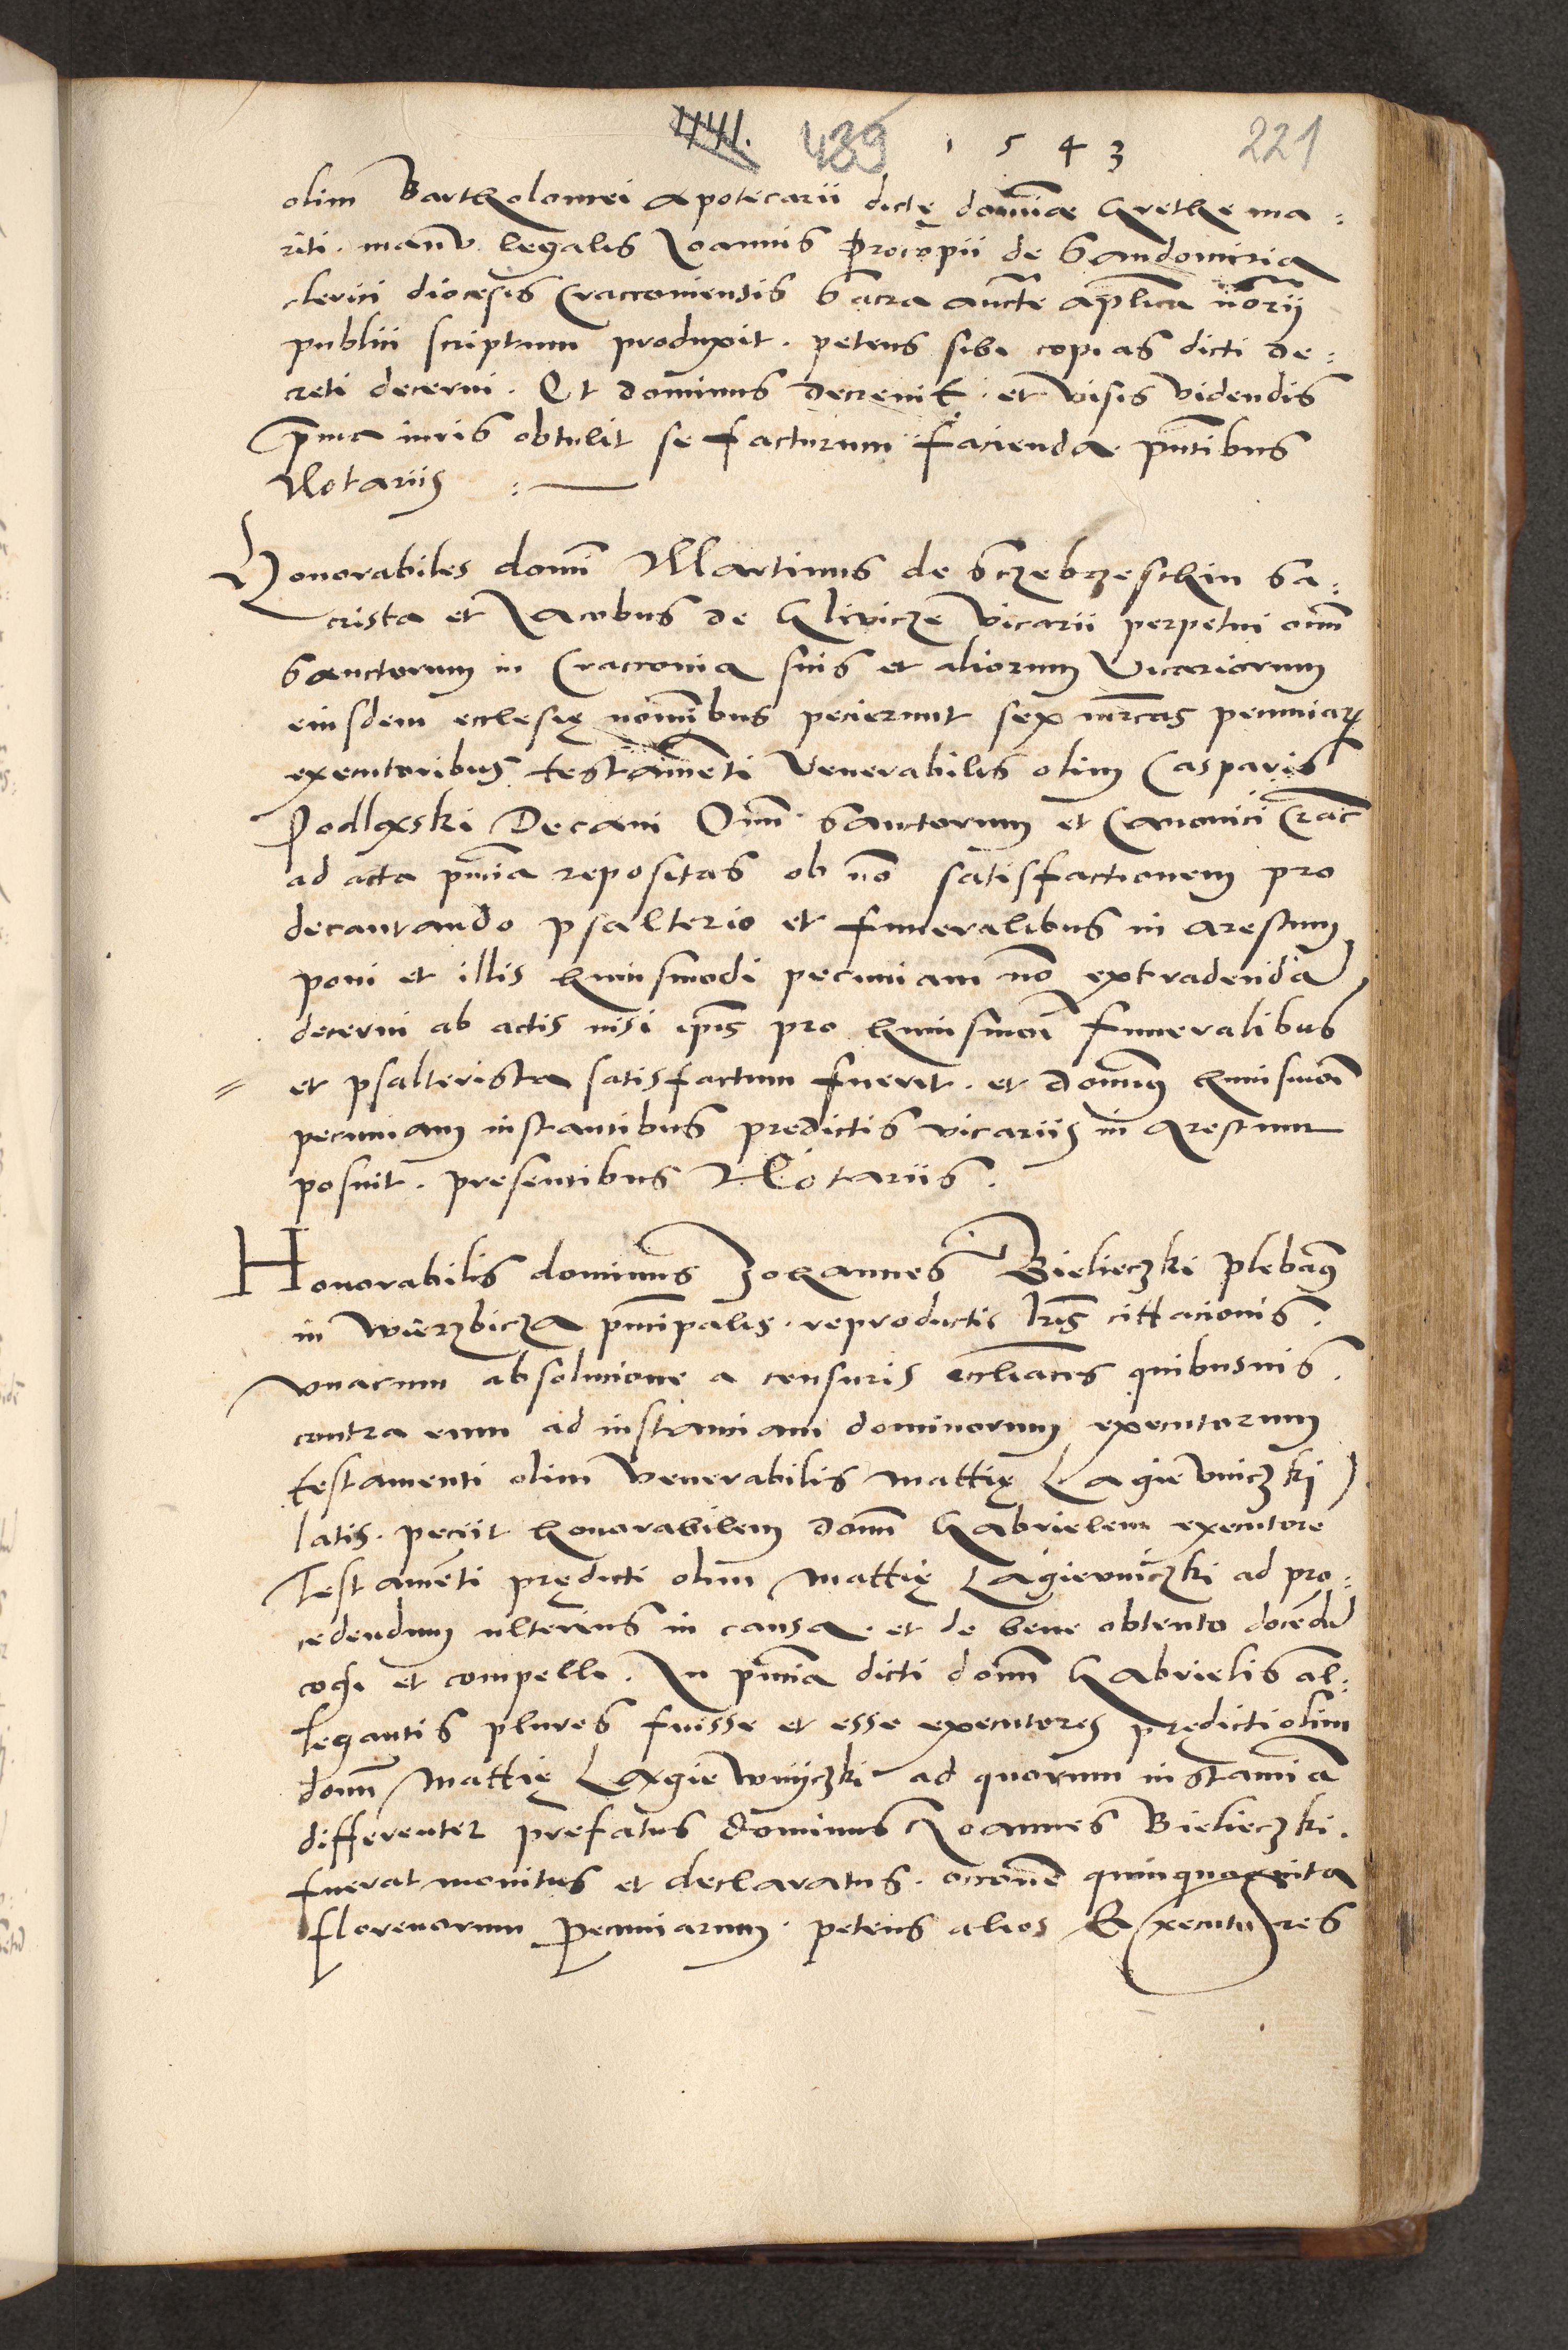 441. 439 1543 221
olim Bartholomei Apotecarii dictę dominae Grethe ma⸗
riti. manu legalis Joannis Procopii de Sandomiria
clerici diocesis Cracoviensis Sacra auctte aplica norii
publici scriptum produxit. petens sibi copias dicti de⸗
creti decerni. Et dominus decrevit. et visis videndis
iuris obtulit se facturum facienda pntibus
Notariis
Honorabiles domi Martinus de Sczebrzeschin sa⸗
crista et Jacobus de Glivicze vicarii perpetui oim
Sanctorum in Cracovia suis et aliorum Vicariorum
eiusdem ecclesię nominibus pecierunt sex mrcas pecuniarum
executoribus testamenti Venerabilis olim Casparis
Podlyski Decani Oim Sanctorum et Canonici Crac
ad acta pntia repositas ob no satisfactionem pro
decantando psalterio et funeralibus in arestum
poni et illis huiusmodi pecuniam no extradendā
decerni ab actis nisi ipis pro huiusmoi funeralibus
et psalterista satisfactum fuerit. et domius huiusmoi
pecuniam instantibus predictis vicariis in Arestum
posuit. presentibus Notariis.
Honorabilis dominus Johannes Bielieczki plebanus
in Wierzbicza principalis. reproductis lris cittacionis.
unacum absolucione a censuris eccliacis quibusvis
contra eum ad instantiam dominorum executorum
testamenti olim venerabilis Mattię Lagievniczki
latis. peciit honorabilem domi Gabrielem executore
Testamenti prędicti olim Mattię Lagievniczki ad pro⸗
cedendum ulterius in causa. et de bene obtento docendū
cogi et compelli. In pntia dicti domi Gabrielis al⸗
legantis plures fuisse et esse executores prędicti olim
domi Mattię Lagiewnyczki ad quorum instantiā
differenter prefatus dominus Joannes Bielieczki.
fuerat monitus et declaratus. occone quinquaginta
florenorum Pecuniarum. petens alios Executores